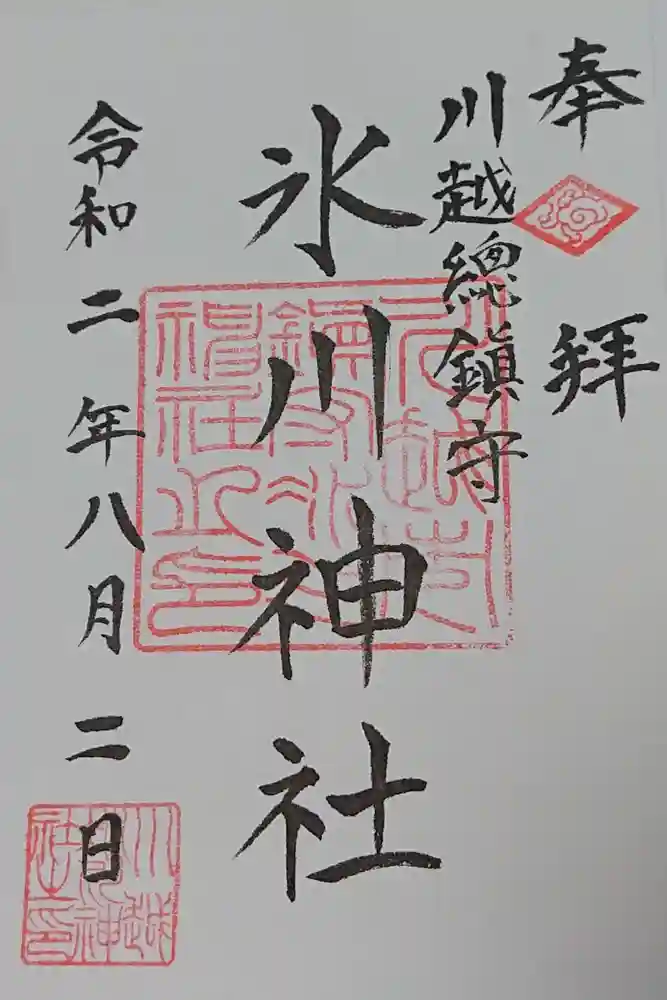 奉拝
川越總鎮守
氷川神社
令和二年八月二日
川越
氷川神
社之印